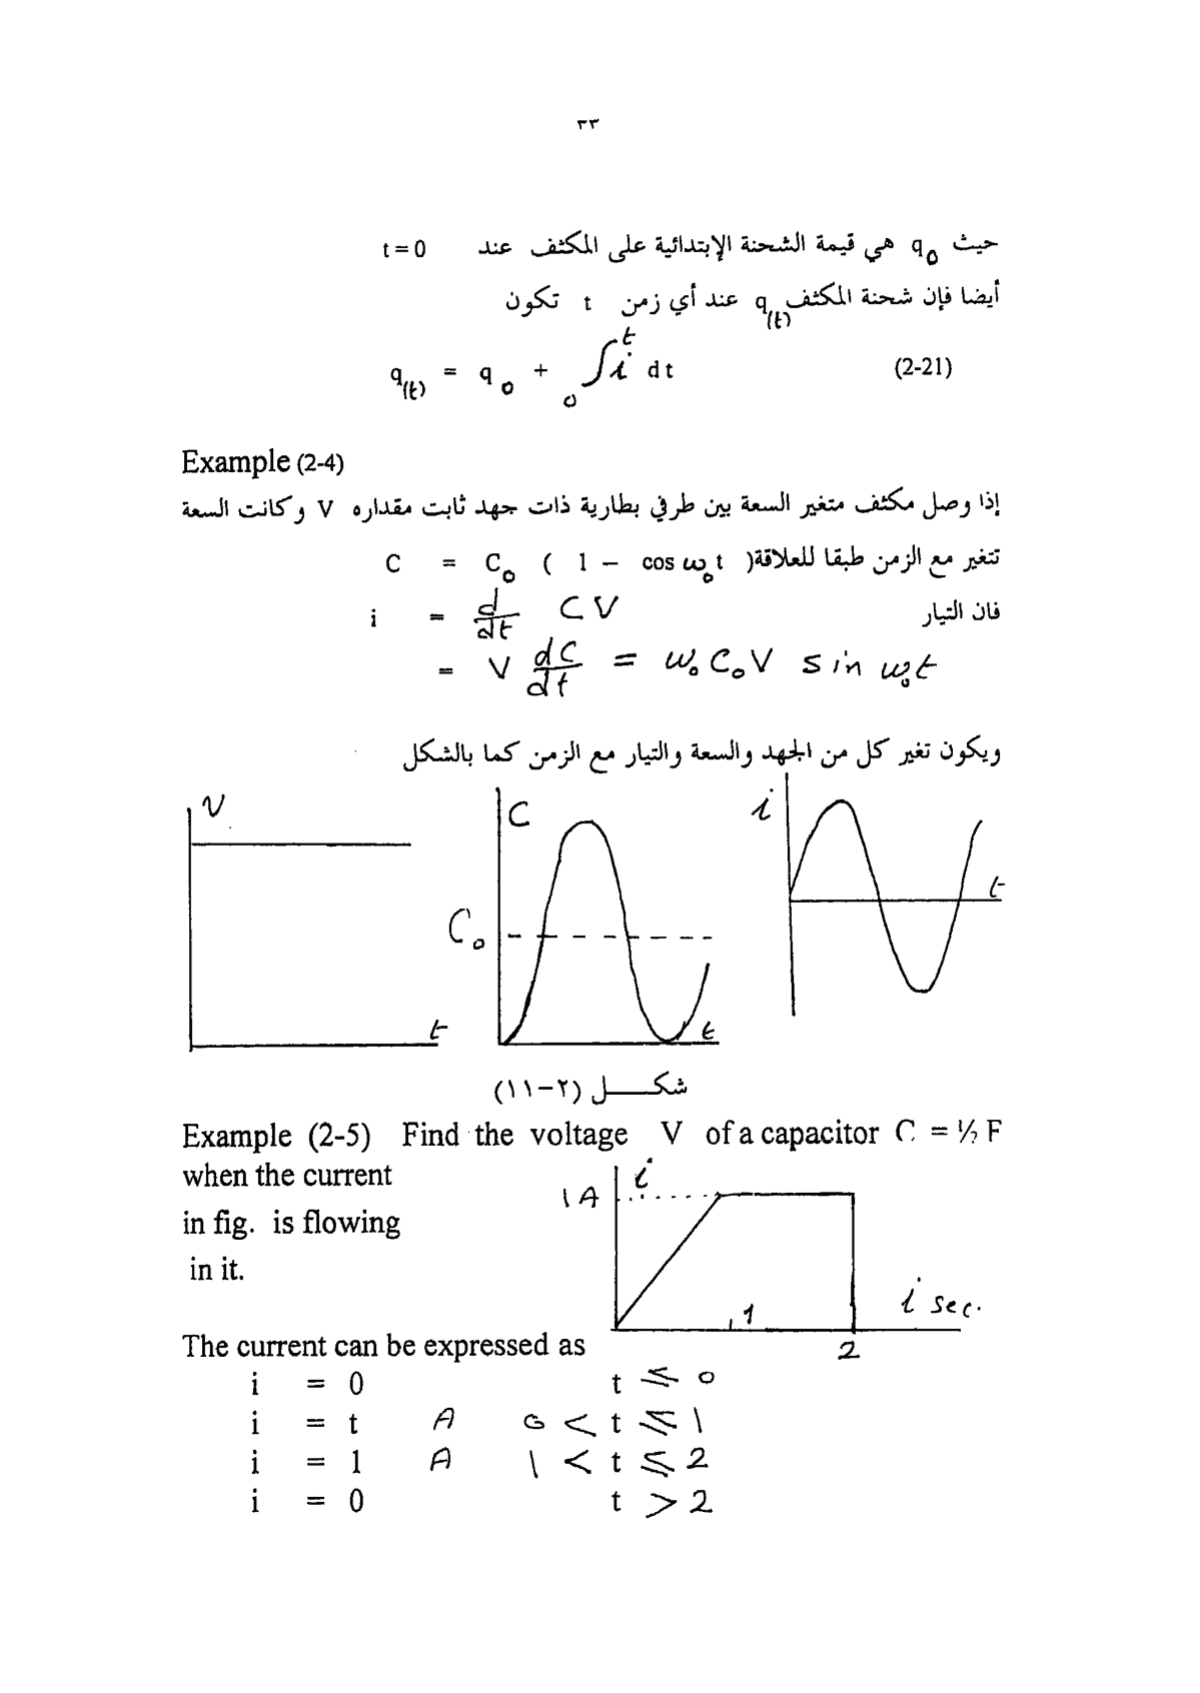 ٣٣
حيث q₀ هي قيمة الشحنة الإبتدائية على المكثف عند t = 0
أيضا فإن شحنة المكثف q(t) عند أي زمن t تكون
q(t) = q₀ + ₀∫ᵗ i dt (2-21)
Example (2-4)
إذا وصل مكثف متغير السعة بين طرفي بطارية ذات جهد ثابت مقداره V وكانت السعة
تتغير مع الزمن طبقا للعلاقة( C = C₀ ( 1 - cos ω₀t
فان التيار i = d/dt CV
= V dC/dt = ω₀C₀V sin ω₀t
ويكون تغير كل من الجهد والسعة والتيار مع الزمن كما بالشكل
V
t
C
C₀
t
i
t
شكـــل (٢-١١)
Example (2-5) Find the voltage V of a capacitor C = ½ F
when the current
in fig. is flowing
in it.
i
1A
1
2
i sec.
The current can be expressed as
i = 0 t ≤ 0
i = t A 0 < t ≤ 1
i = 1 A 1 < t ≤ 2
i = 0 t > 2